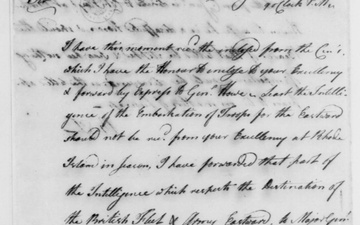 oClock P.M.
I have this moment recd. the enclosed from the
which I have the Honor to enclose to your Excellency
& forward by Express to Genl. Howe. Least the Intelli-
gence of the Embarkation of Troops for the Eastward
should not be recd. from your Excellency at Rhode
Island in season, I have forwarded that part of
the Intelligence which respects the Destination of
the British Fleet & Army Eastward, to Major Genl.